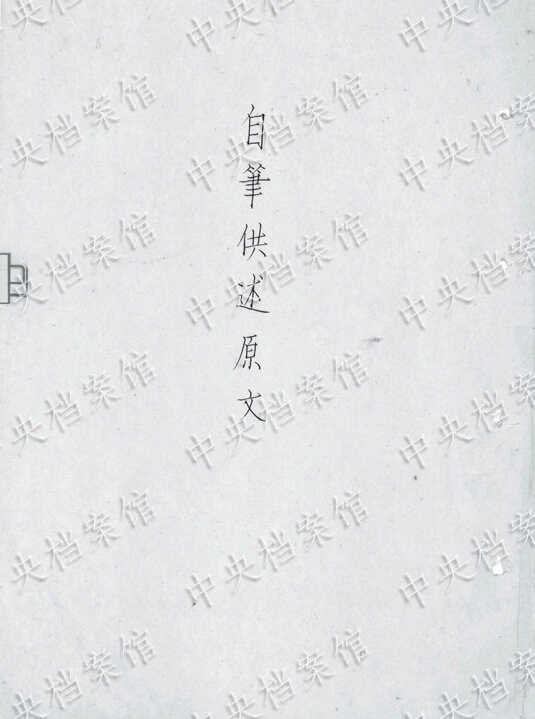 自筆供述原文
中央档案馆